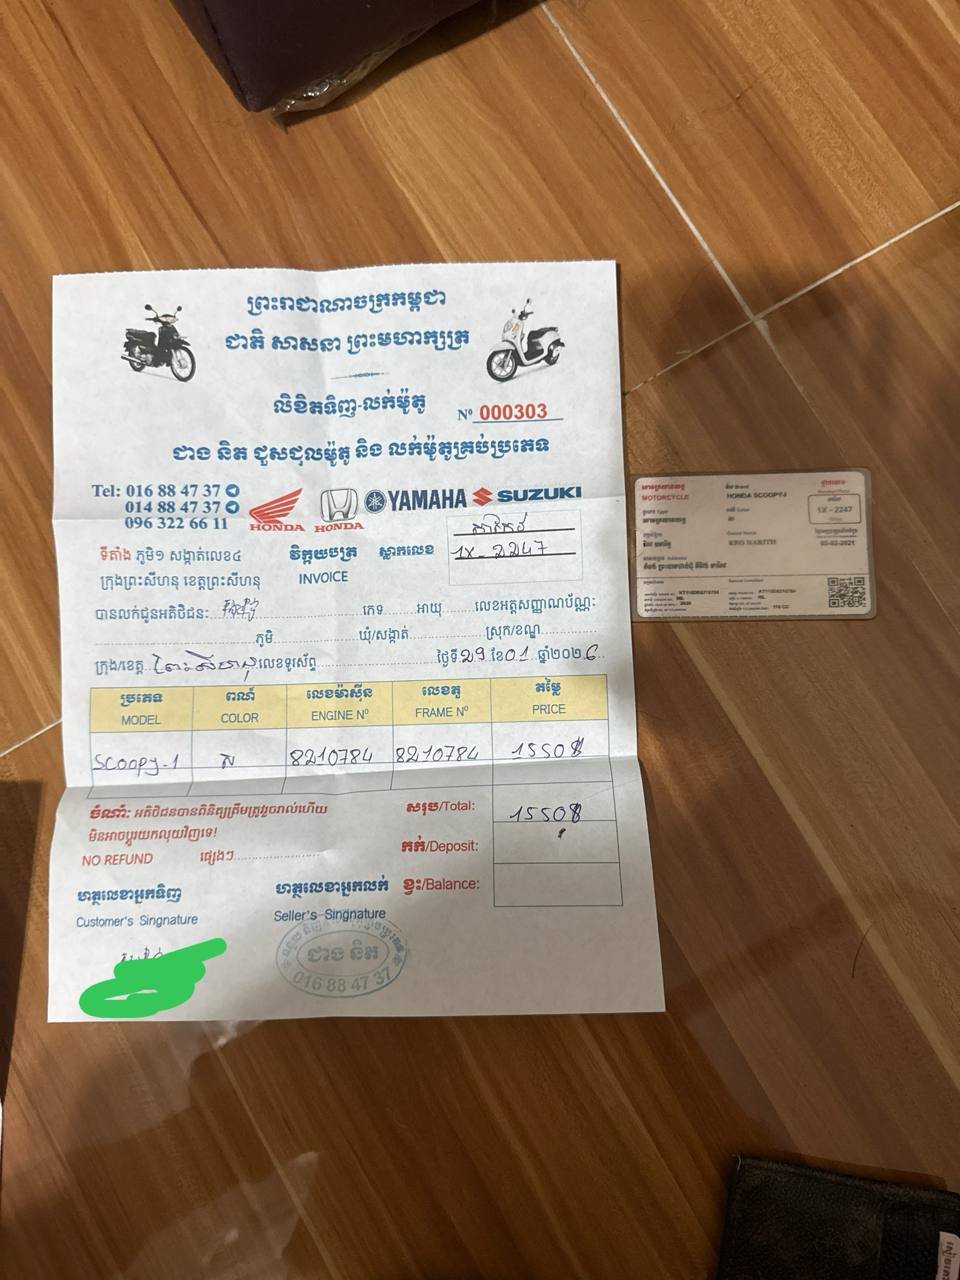 ព្រះរាជាណាចក្រកម្ពុជា
ជាតិ សាសនា ព្រះមហាក្សត្រ
លិខិតទិញ-លក់ម៉ូតូ
Nº 000303
ជាង និត ជួសជុលម៉ូតូ និង លក់ម៉ូតូគ្រប់ប្រភេទ
Tel: 016 88 47 37
014 88 47 37
096 322 66 11
HONDA HONDA YAMAHA SUZUKI
ទីតាំង ភូមិ១ សង្កាត់លេខ៤
ក្រុងព្រះសីហនុ ខេត្តព្រះសីហនុ
វិក្កយបត្រ
INVOICE
ស្លាកលេខ
1X-2247
បានលក់ជូនអតិថិជន: ភេទ អាយុ លេខអត្តសញ្ញាណប័ណ្ណ:
ភូមិ ឃុំ/សង្កាត់ ស្រុក/ខណ្ឌ
ក្រុង/ខេត្ត ព្រះសីហនុ លេខទូរស័ព្ទ ថ្ងៃទី 29 ខែ 01 ឆ្នាំ២០២6
ប្រភេទ ពណ៌ លេខម៉ាស៊ីន លេខតួ តម្លៃ
MODEL COLOR ENGINE Nº FRAME Nº PRICE
SCOOPY-1 ស 8210784 8210784 1550$
ចំណាំ: អតិថិជនបានពិនិត្យត្រឹមត្រូវរួចរាល់ហើយ
មិនអាចប្តូរយកលុយវិញទេ!
NO REFUND ផ្សេងៗ
សរុប/Total: 1550$
កក់/Deposit:
ខ្វះ/Balance:
ហត្ថលេខាអ្នកទិញ
Customer's Singnature
ហត្ថលេខាអ្នកលក់
Seller's Singnature
ជាង និត
016 88 47 37
MOTORCYCLE
ម៉ាក Brand
HONDA SCOOPY-I
1X - 2247
KEO NARITH
03-02-2021